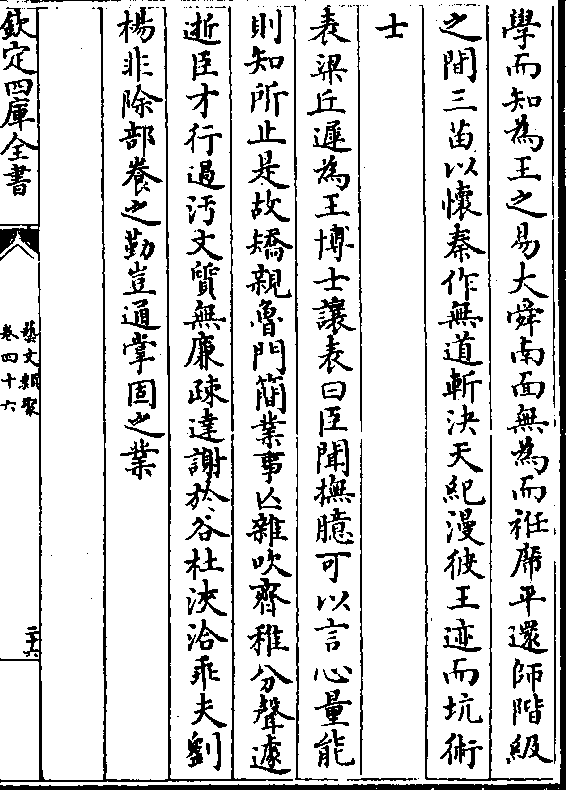 學而知為王之易大舜南面無為而袵席平還師階級
之間三苗以懷秦作無道斬決天紀漫彼王迹而坑術
士
表梁丘遲為王博士讓表曰臣聞撫臆可以言心量能
則知所止是故矯親魯門簡業事亡雜吹齊稚分聲遽
逝臣才行過汚文質無廉疎達謝於谷杜浹洽乖夫劉
楊非除部養之勤豈通掌固之業
欽定四庫全書
藝文類聚
卷四十六
二十六